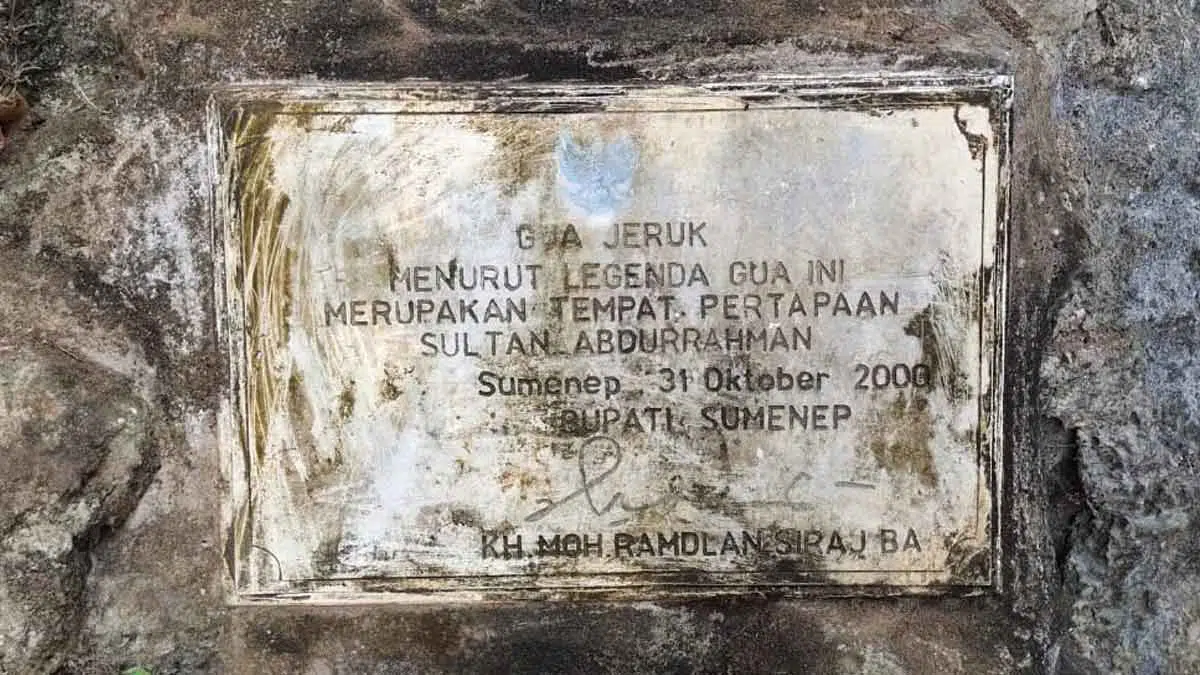 GUA JERUK
MENURUT LEGENDA GUA INI
MERUPAKAN TEMPAT PERTAPAAN
SULTAN ABDURRAHMAN
Sumenep, 31 Oktober 2000
BUPATI SUMENEP
KH. MOH. RAMDLAN SIRAJ BA